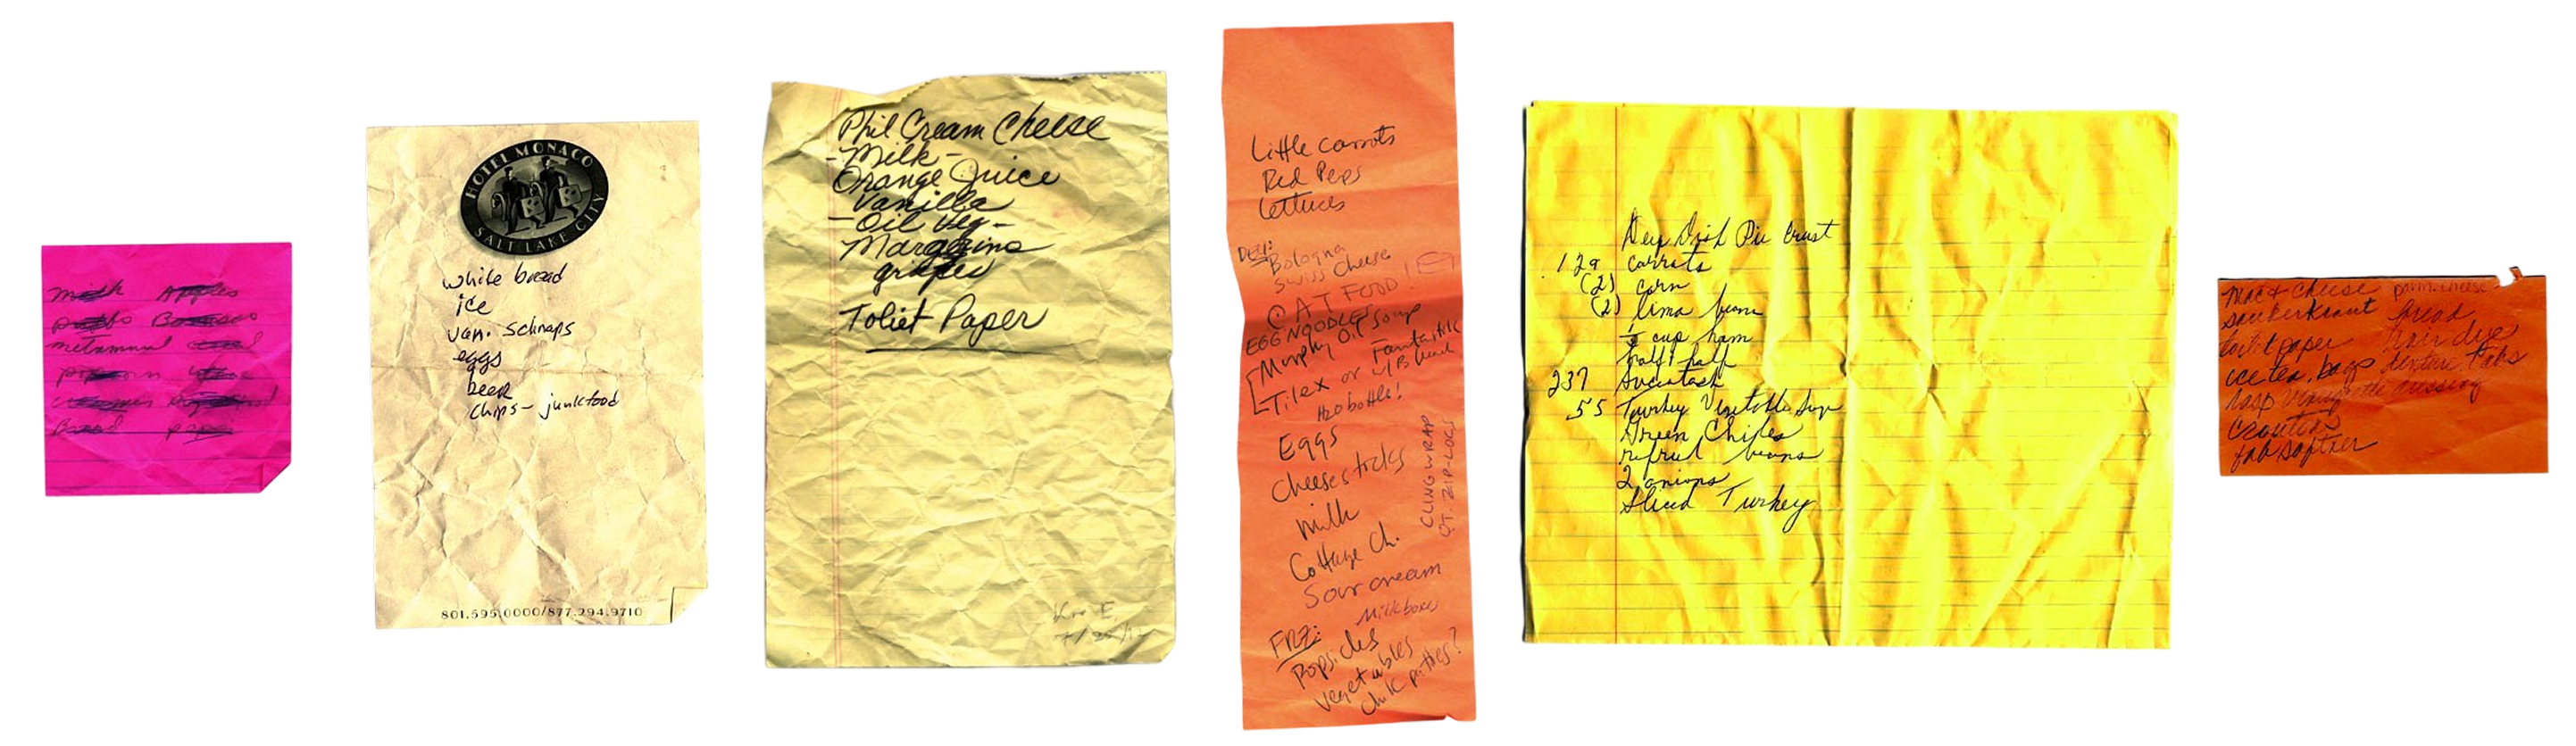 milk Apples
puffs Bananas
metamucil cereal
popcorn
creamer
Bread paper
HOTEL MONACO
SALT LAKE CITY
white bread
ice
van. schnaps
eggs
beer
chips - junkfood
801.595.0000/877.294.9710
Phil Cream Cheese
- Milk -
Orange Juice
Vanilla
- Oil Veg -
Margarine
grapes
Toliet Paper
Little carrots
Red Peps
Lettuces
DELI:
Bologna
Swiss Cheese
CAT FOOD!
EGG NOODLES
Murphy Oil Soap
Tilex or Fantastik
w/ Bleach
H20 bottle!
Eggs
Cheesesticks
milk
Cottage Ch.
Sour cream
Milk boxes
CLING WRAP
QT. ZIP-LOCS
FRZ:
Popsicles
Vegetables
Chik patties?
Deep Dish Pie Crust
129 carrots
(2) corn
(2) lima beans
cup ham
half + half
237 Succotash
.55 Turkey Vegetable Soup
Green Chiles
refried beans
2 onions
Sliced Turkey
mac + cheese parm. cheese
sauderkraut bread
toilet paper hair dye
ice tea bags denture tabs
rasp vinegarette dressing
croutons
fab softner